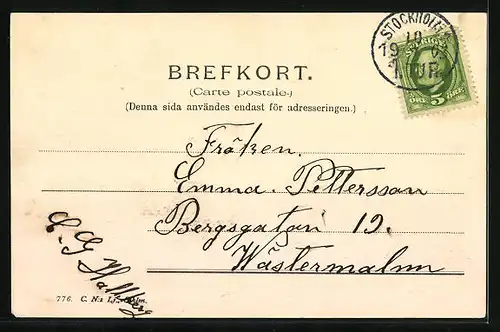 BREFKORT.
(Carte postale.)
(Denna sida användes endast för adresseringen.)
STOCKHOLM
5 ÖRE
Fröken.
Emma. Pettersson
Bergsgatan 19.
Wästermalm
C. G Hallberg
776. C. N:s